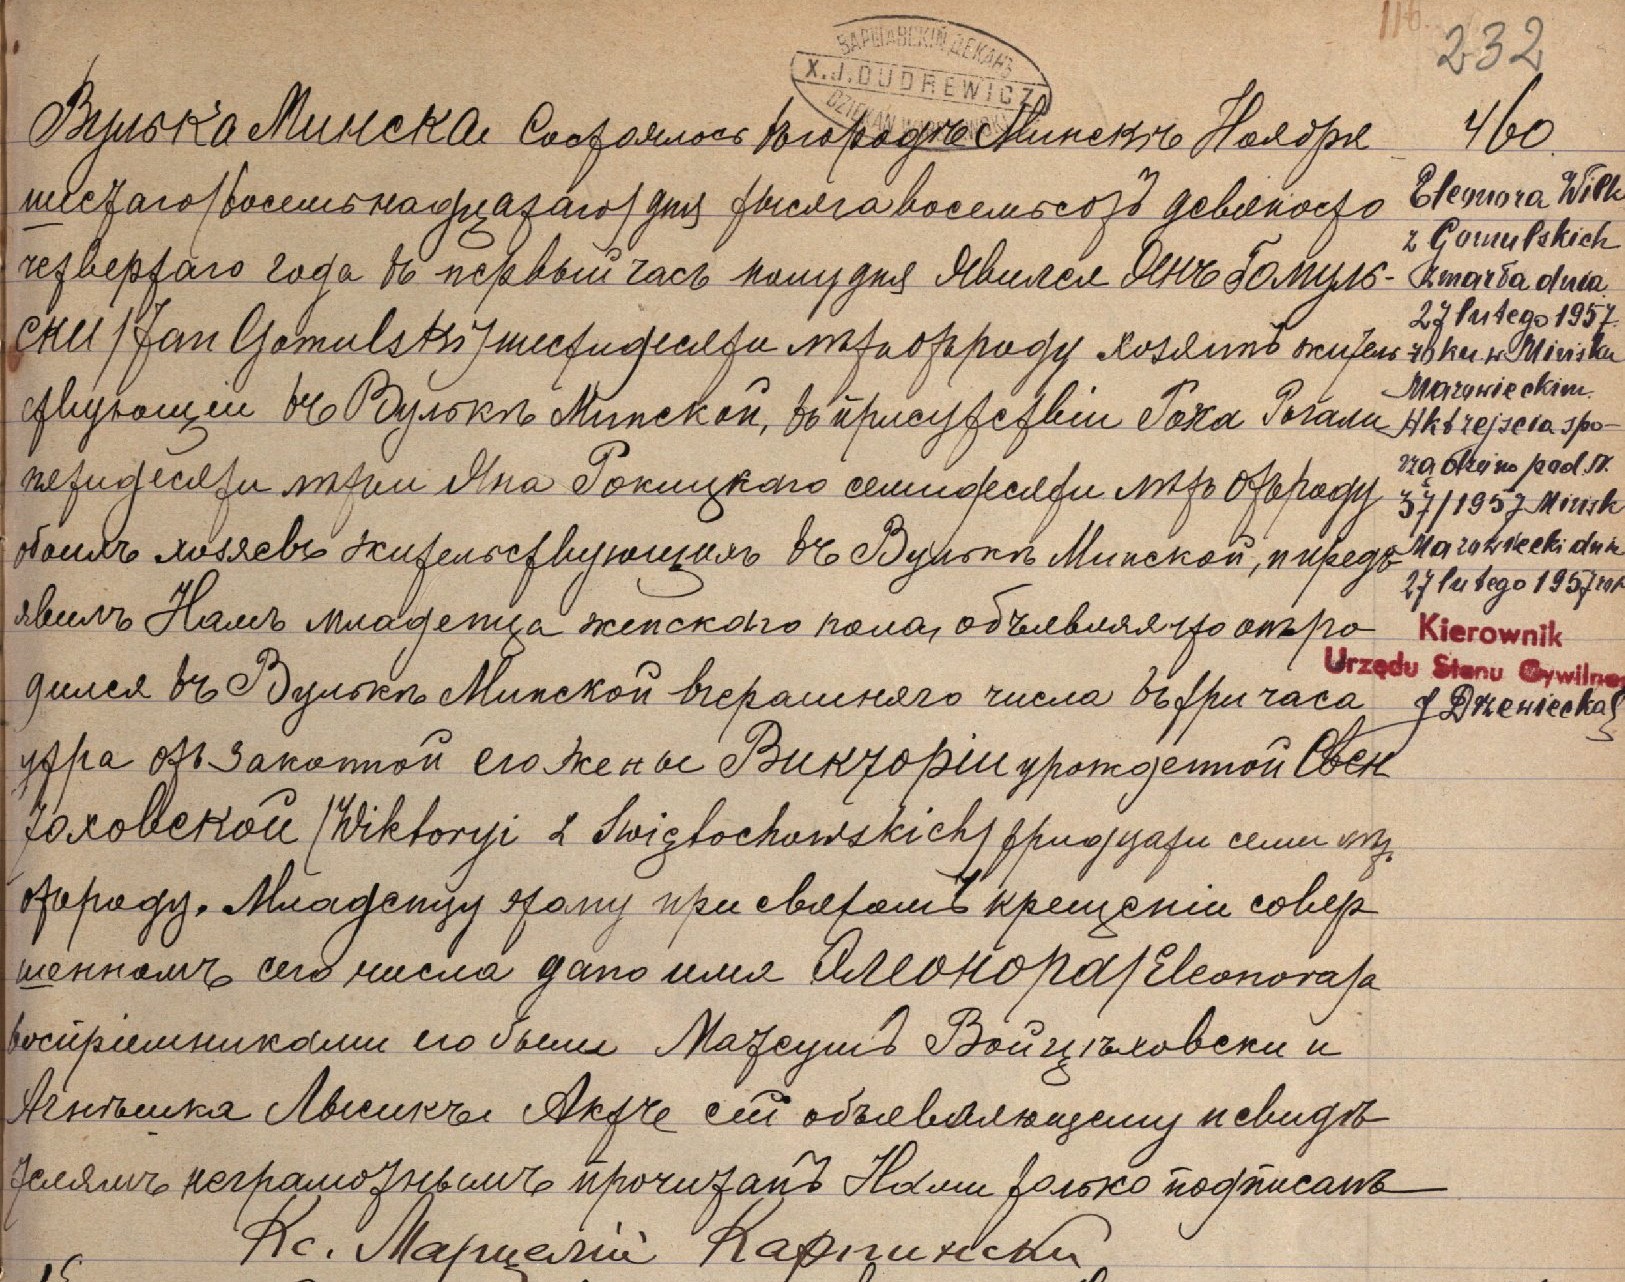 116.
232
ВАРШАВСКІЙ ДЕКАНЪ
X.J.DUDREWICZ
DZIEKAN WARSZAWSKI
Вулька Минска Состоялось въ городѣ Минскѣ Ноября
шестаго /восемьнадцатаго/ дня тысяча восемьсотъ девяносто
четвертаго года въ первый часъ полудня Явился Янъ Гомуль-
ски /Jan Gomulski/ шестидесяти лѣтъ отъ роду хозяинъ житель
ствующій въ Вулькѣ Минской, въ присутствіи Роха Рогали
пятидесяти лѣтъ и Яна Рокицкаго семидесяти лѣтъ отъ роду
обоихъ хозяевъ жительствующихъ въ Вулькѣ Минской, и предъ
явилъ Намъ младенца женскаго пола, объявляя что онъ ро
дился въ Вулькѣ Минской вчерашняго числа въ три часа
утра отъ законной его жены Викторіи урожденной Свен
тоховской /Wiktoryi z Swiętochowskich/ тридцати семи лѣт.
отъ роду. Младенцу этому при святомъ крещеніи совер
шенномъ сего числа дано имя Элеонора /Eleonora/ а
воспріемниками его были Матеушъ Войцѣховски и
Агнѣшка Лысикъ. Актъ сей объявляющему и свидѣ
телямъ неграмотнымъ прочитанъ Нами только подписанъ
Кс. Марцелій Карпински
460.
Eleonora Wilk
z Gomulskich
zmarła dnia
27 lutego 1957
roku w Mińsku
Mazowieckim.
Akt zejścia spo-
rządzono pod N.
37/1957 Mińsk
Mazowiecki dnia
27 lutego 1957 rok
Kierownik
Urzędu Stanu Cywilnego
J Drzewiecka